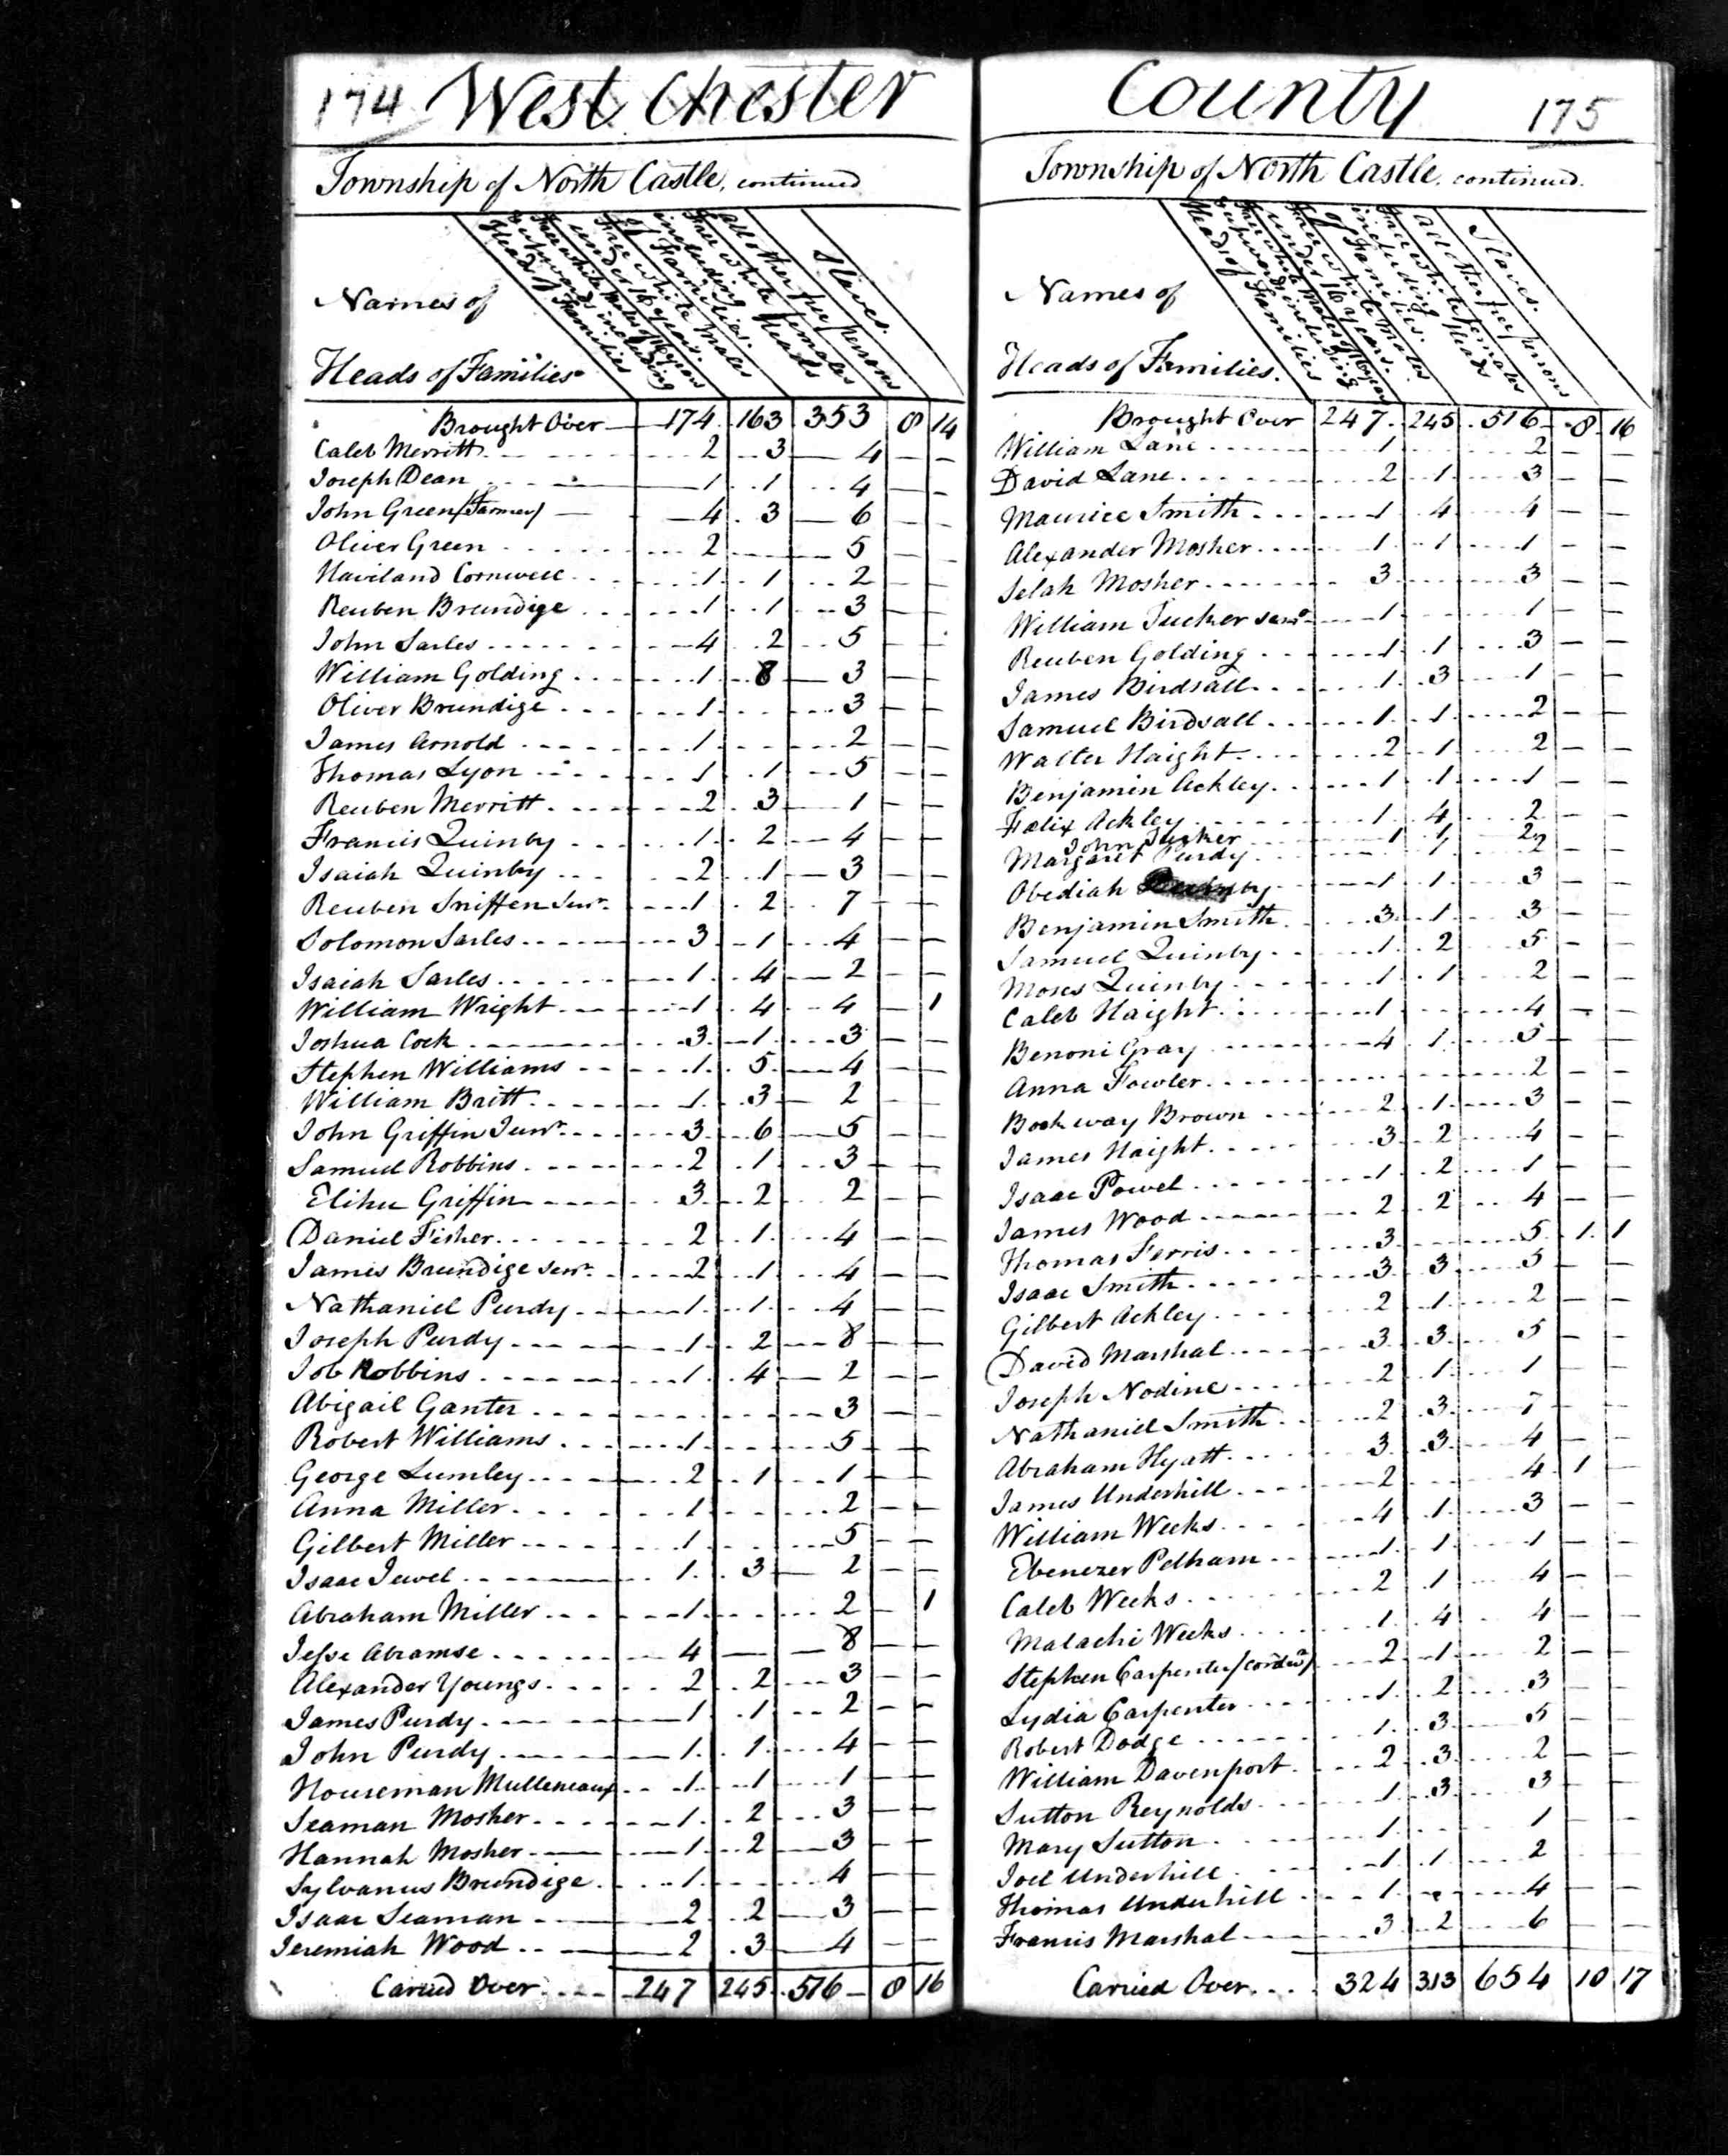 174 West Chester
Township of North Castle, continued
Names of
Heads of Families
Heads of Families
Free white Males of 16 years & upwards including
Free white Males under 16 years.
Free white females including Heads of Families.
all other free persons
Slaves.
Brought Over 174 163 353 8 14
Caleb Merritt 2 3 4 — —
Joseph Dean 1 1 4 — —
John Green (Farmer) 4 3 6 — —
Oliver Green 2 — 5 — —
Haviland Cornwell 1 1 2 — —
Reuben Brundige 1 1 3 — —
John Sarles 4 2 5 — —
William Golding 1 8 3 — —
Oliver Brundige 1 3 — —
James Arnold 1 2 — —
Thomas Lyon 1 1 5 — —
Reuben Merritt 2 3 1 — —
Francis Quinby 1 2 4 — —
Isaiah Quinby 2 1 3 — —
Reuben Sniffen Junr. 1 2 7 — —
Solomon Sarles 3 1 4 — —
Isaiah Sarles 1 4 2 — —
William Wright 1 4 4 — 1
Joshua Cock 3 1 3 — —
Stephen Williams 1 5 4 — —
William Britt 1 3 2 — —
John Griffin Junr. 3 6 5 — —
Samuel Robbins 2 1 3 — —
Elihu Griffin 3 2 2 — —
Daniel Fisher 2 1 4 — —
James Brundige Senr. 2 1 4 — —
Nathaniel Purdy 1 1 4 — —
Joseph Purdy 1 2 8 — —
Job Robbins 1 4 2 — —
Abigail Ganter 3 — —
Robert Williams 1 5 — —
George Lumley 2 1 1 — —
Anna Miller 1 2 — —
Gilbert Miller 1 5 — —
Isaac Jewel 1 3 2 — —
Abraham Miller 1 2 — 1
Jesse Abramse 4 — 8 — —
Alexander Youngs 2 2 3 — —
James Purdy 1 1 2 — —
John Purdy 1 1 4 — —
Houseman Mulleneaux 1 1 1 — —
Seaman Mosher 1 2 3 — —
Hannah Mosher 1 2 3 — —
Sylvanus Brundige 1 4 — —
Isaac Seaman 2 2 3 — —
Jeremiah Wood 2 3 4 — —
Carried Over 247 245 516 8 16
County 175
Township of North Castle, continued.
Names of
Heads of Families.
Heads of Families
Free white Males of 16 years & upwards including
Free white Males under 16 years.
Free white females including Heads of Families.
all other free persons
Slaves.
Brought Over 247 245 516 8 16
William Lane 1 2 — —
David Lane 2 1 3 — —
Maurice Smith 1 4 4 — —
Alexander Mosher 1 1 1 — —
Selah Mosher 3 3 — —
William Tucker Senr. 1 1 — —
Reuben Golding 1 1 3 — —
James Birdsall 1 3 1 — —
Samuel Birdsall 1 1 2 — —
Walter Haight 2 1 2 — —
Benjamin Ackley 1 1 1 — —
Felix Ackley 1 4 2 — —
John Tucker 1 1 2
Margaret Purdy 1 2 — —
Obediah Quinby 1 1 3 — —
Benjamin Smith 3 1 3 — —
Samuel Quinby 1 2 5 — —
Moses Quinby 1 1 2 — —
Caleb Haight 1 4 — —
Benoni Gray 4 1 5 — —
Anna Fowler 2 — —
Bockway Brown 2 1 3 — —
James Haight 3 2 4 — —
Isaac Powel 1 2 1 — —
James Wood 2 2 4 — —
Thomas Ferris 3 5 1 1
Isaac Smith 3 3 5 — —
Gilbert Ackley 2 1 2 — —
David Marshal 3 3 5 — —
Joseph Nodine 2 1 1 — —
Nathaniel Smith 2 3 7 — —
Abraham Hyatt 3 3 4 — —
James Underhill 2 4 1 —
William Weeks 4 1 3 — —
Ebenezer Pelham 1 1 1 — —
Caleb Weeks 2 1 4 — —
Malachi Weeks 1 4 4 — —
Stephen Carpenter (cordwr) 2 1 2 — —
Lydia Carpenter 1 2 3 — —
Robert Dodge 1 3 5 — —
William Davenport 2 3 2 — —
Sutton Reynolds 1 3 3 — —
Mary Sutton 1 1 — —
Joel Underhill 1 1 2 — —
Thomas Underhill 1 4 — —
Francis Marshal 3 2 6 — —
Carried Over 324 313 654 10 17